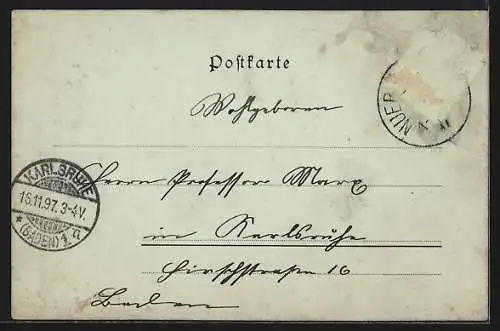 Postkarte
Wohlgeboren
NUER
KARLSRUHE
16.11.97. 3-4V.
* (BADEN) 1. a
Herrn Professor Marx
in Karlsruhe
Hirschstraße 16
Baden